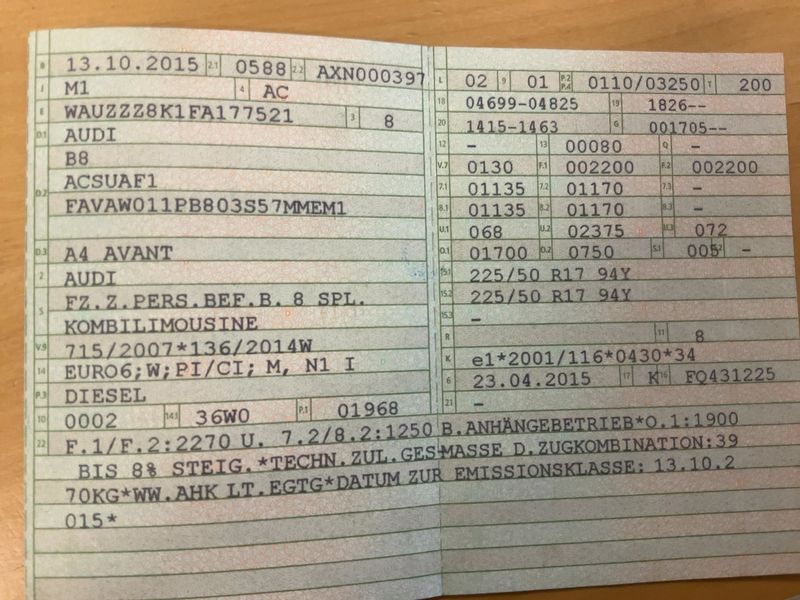 B 13.10.2015 2.1 0588 2.2 AXN000397
J M1 4 AC
E WAUZZZ8K1FA177521 3 8
D.1 AUDI
B8
D.2 ACSUAF1
FAVAW011PB803S57MMEM1
D.3 A4 AVANT
2 AUDI
5 FZ.Z.PERS.BEF.B. 8 SPL.
KOMBILIMOUSINE
V.9 715/2007*136/2014W
14 EURO6;W;PI/CI; M, N1 I
P.3 DIESEL
10 0002 14.1 36W0 P.1 01968
L 02 9 01 P.2 P.4 0110/03250 T 200
18 04699-04825 19 1826--
20 1415-1463 G 001705--
12 - 13 00080 Q -
V.7 0130 F.1 002200 F.2 002200
7.1 01135 7.2 01170 7.3 -
8.1 01135 8.2 01170 8.3 -
U.1 068 U.2 02375 U.3 072
O.1 01700 O.2 0750 S.1 005 S.2 -
15.1 225/50 R17 94Y
15.2 225/50 R17 94Y
15.3 -
R 11 8
K e1*2001/116*0430*34
6 23.04.2015 17 K 16 FQ431225
21 -
22 F.1/F.2:2270 U. 7.2/8.2:1250 B.ANHÄNGEBETRIEB*O.1:1900
BIS 8% STEIG.*TECHN.ZUL.GES.MASSE D.ZUGKOMBINATION:39
70KG*WW.AHK LT.EGTG*DATUM ZUR EMISSIONSKLASSE: 13.10.2
015*